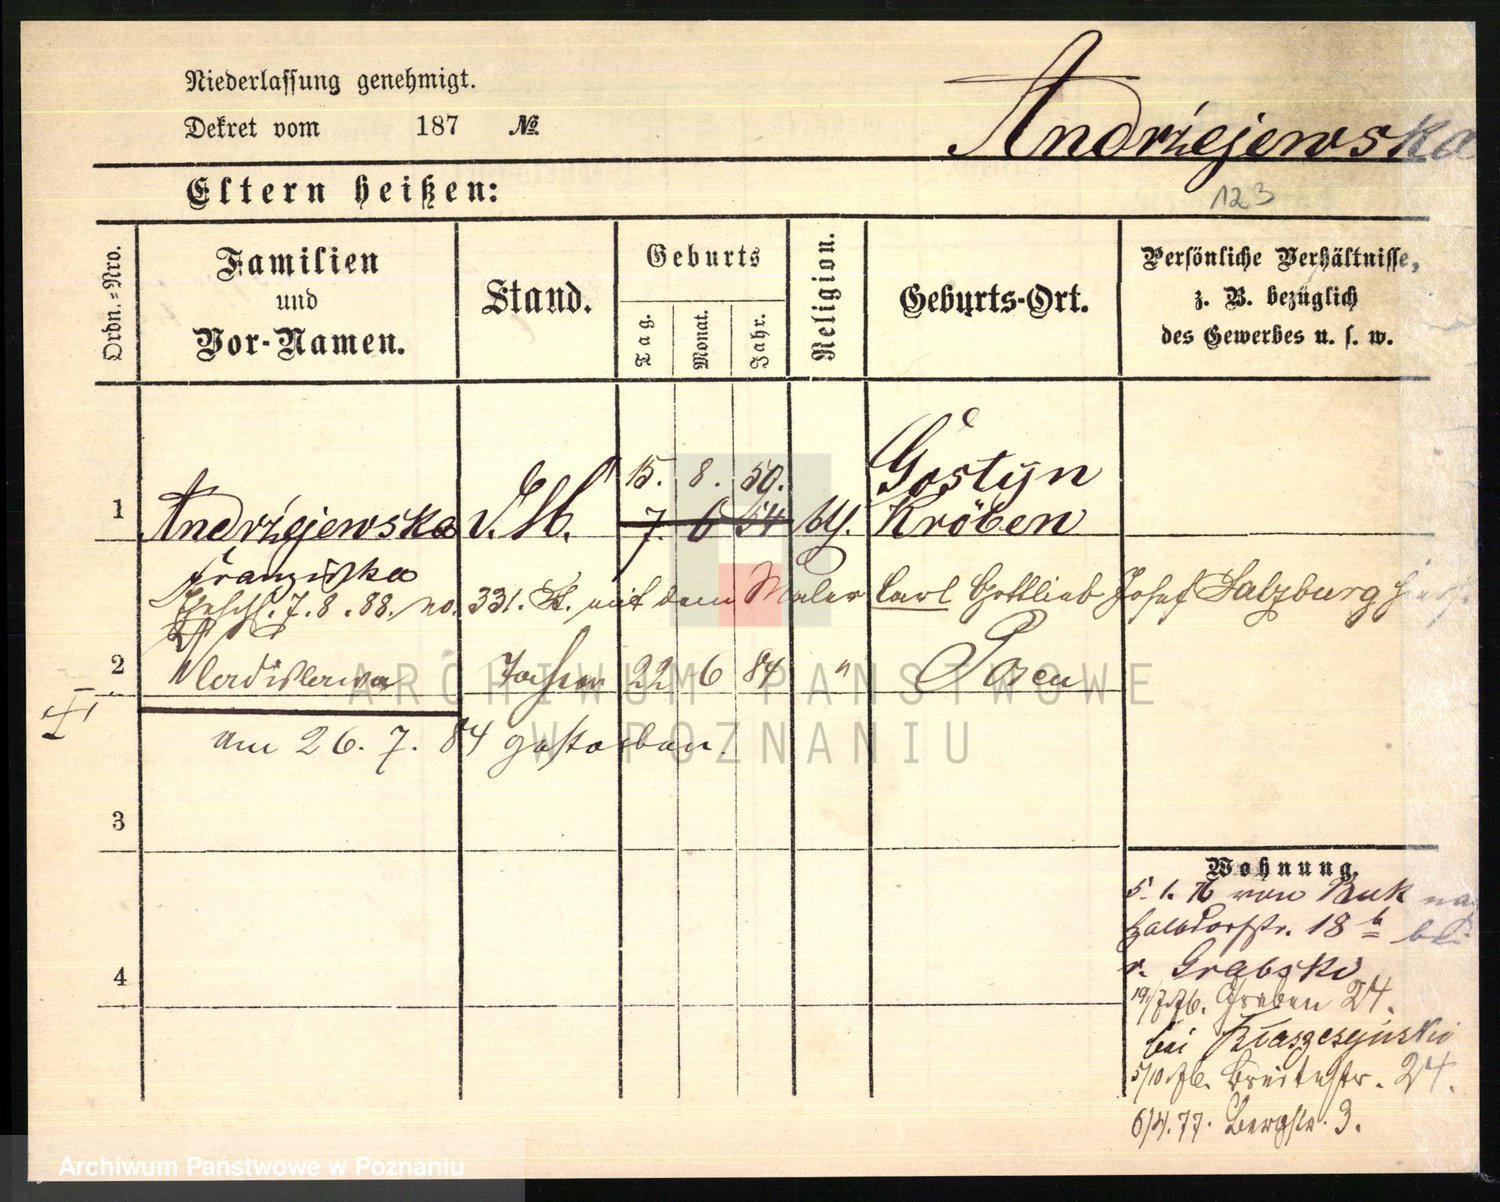 Niederlassung genehmigt.
Dekret vom 187 №
Andrżejewska
123
Eltern heißen:
Ordn.-Nro.
Familien
und
Vor-Namen.
Stand.
Geburts
Tag.
Monat.
Jahr.
Religion.
Geburts-Ort.
Persönliche Verhältnisse,
z. B. bezüglich
des Gewerbes u. s. w.
15. 8. 50. Gostyn
1 Andrżejewska 7. 6 54 Kröben
Franziska
Ehesch. 7. 8. 88. no. 331. St. mit dem Maler Carl Gottlieb Josef Salzburg
2 Wladislawa Tochter 22 6 84 " Posen
am 26. 7. 84 gestorben.
3
4
Wohnung.
5. 1. 76 von
Halbdorfstr. 18 b bei
v. Grabski
19/7.76. Graben 24.
bei
5/10.76. Breitestr. 24.
6/4.77. Bergstr. 3.
ARCHIWUM PAŃSTWOWE
W POZNANIU
Archiwum Państwowe w Poznaniu